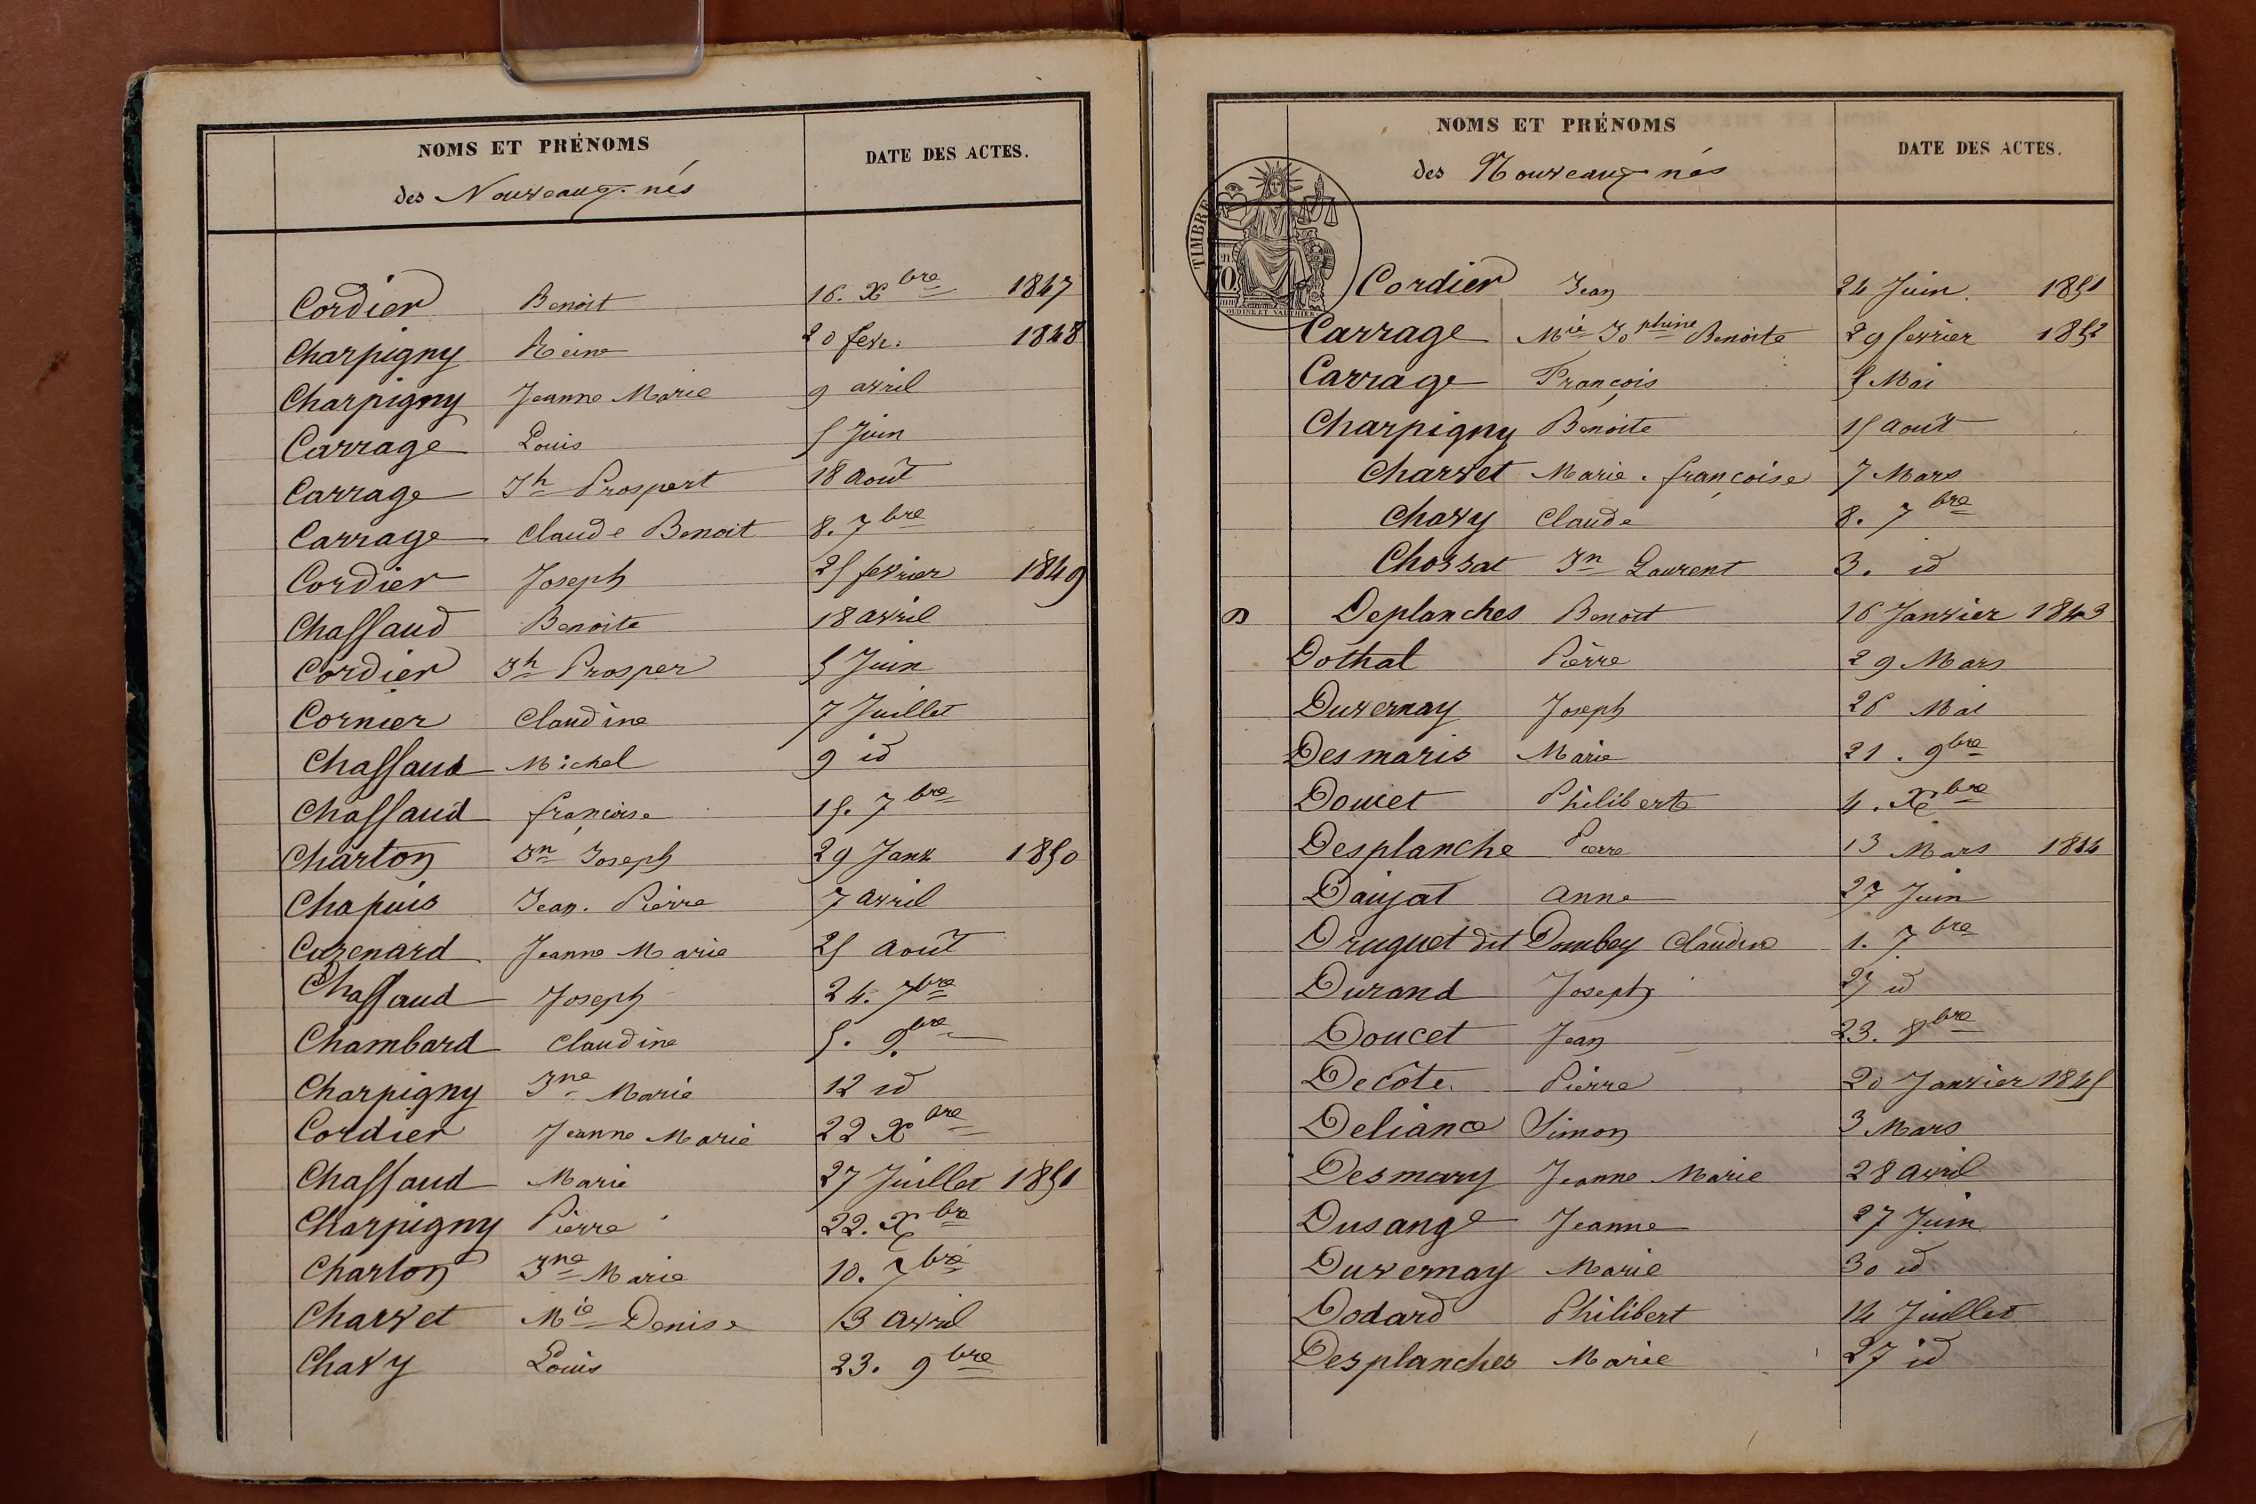 NOMS ET PRÉNOMS
DATE DES ACTES.
des Nouveaux-nés
Cordier Benoit 16. Xbre 1847
Charpigny Reine 20 fevr. 1848
Charpigny Jeanne Marie 9 avril
Carrage Louis 5 Juin
Carrage Jh Prospert 18 août
Carrage Claude Benoit 8. 7bre
Cordier Joseph 25 fevrier 1849
Chaffaud Benoite 18 avril
Cordier Jh Prosper 5 Juin
Cornier Claudine 7 Juillet
Chaffaud Michel 9 id
Chaffaud françoise 15. 7bre
Charton Jn Joseph 29 Janv 1850
Chapuis Jean. Pierre 7 avril
Curenard Jeanne Marie 25 août
Chaffaud Joseph 24. 7bre
Chambard Claudine 5. 9bre
Charpigny Jne Marie 12 id
Cordier Jeanne Marie 22 Xbre
Chaffaud Marie 27 Juillet 1851
Charpigny Pierre 22. Xbre
Charlon Jne Marie 10. 7bre
Charvet Mie Denise 13 avril
Chavy Louis 23. 9bre
NOMS ET PRÉNOMS
DATE DES ACTES.
des Nouveaux nés
TIMBRE
OUDINÉ ET VAUTHIER
Cordier Jean 24 Juin 1851
Carrage Mie Jophine Benoite 29 fevrier 1852
Carrage François 5 Mai
Charpigny Benoite 15 août
Charvet Marie. françoise 7 Mars
Chavy Claude 8. 7bre
Chossat Jn Laurent 3. id
D Deplanches Benoit 16 Janvier 1843
Dothal Pierre 29 Mars
Duvernay Joseph 26 Mai
Desmaris Marie 21. 9bre
Doucet Philiberte 4. Xbre
Desplanche Pierre 13 Mars 1844
Daujat Anne 27 Juin
Druguet dit Dombey Claudine 1. 7bre
Durand Joseph 27 id
Doucet Jean 23. 8bre
Decôte Pierre 20 Janvier 1845
Deliance Simon 3 Mars
Desmary Jeanne Marie 28 avril
Dusange Jeanne 27 Juin
Duvernay Marie 30 id
Dodard Philibert 14 Juillet
Desplanches Marie 27 id